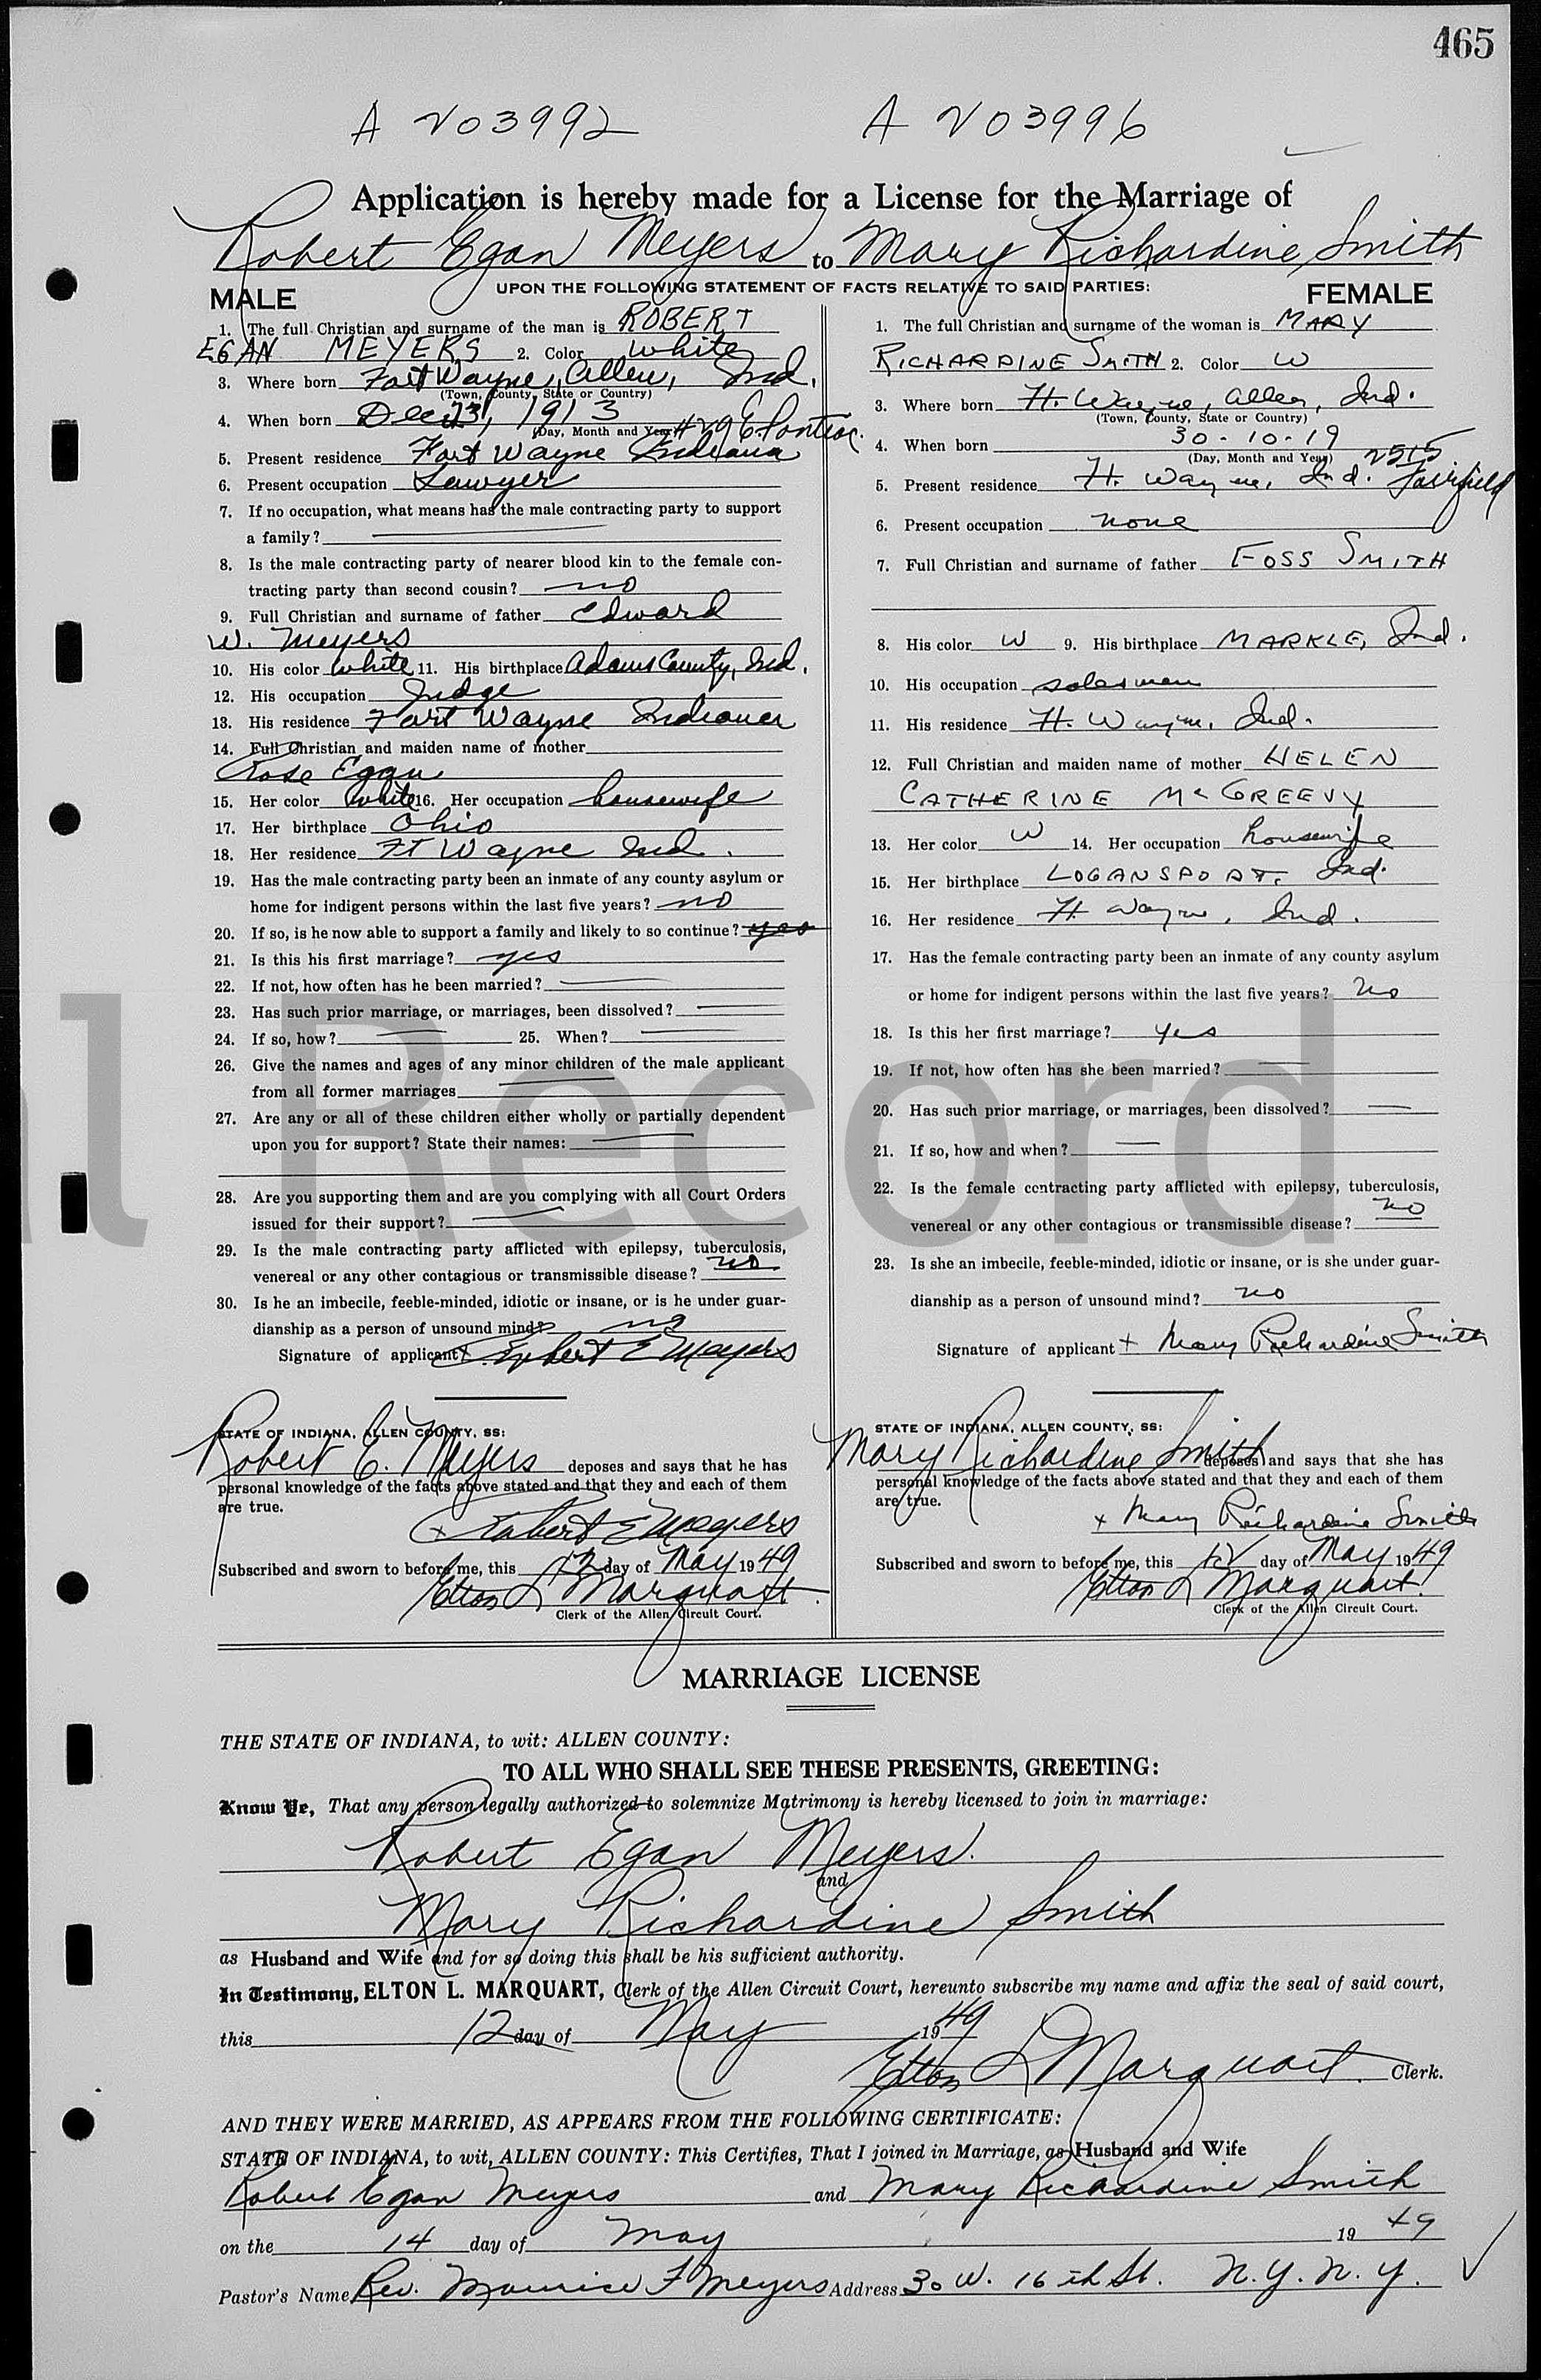 465
A V03992 A V03996
Application is hereby made for a License for the Marriage of
Robert Egan Meyers to Mary Richardine Smith
UPON THE FOLLOWING STATEMENT OF FACTS RELATIVE TO SAID PARTIES:
MALE
1. The full Christian and surname of the man is ROBERT
EGAN MEYERS 2. Color White
3. Where born Fort Wayne, Allen, Ind.
(Town, County, State or Country)
4. When born Dec 23, 1913
(Day, Month and Year) 429 E. Pontiac.
5. Present residence Fort Wayne Indiana
6. Present occupation Lawyer
7. If no occupation, what means has the male contracting party to support
a family?
8. Is the male contracting party of nearer blood kin to the female con-
tracting party than second cousin? no
9. Full Christian and surname of father Edward
W. Meyers
10. His color White 11. His birthplace Adams County, Ind.
12. His occupation Judge
13. His residence Fort Wayne Indiana
14. Full Christian and maiden name of mother
Rose Egan
15. Her color White 16. Her occupation housewife
17. Her birthplace Ohio
18. Her residence Ft Wayne Ind.
19. Has the male contracting party been an inmate of any county asylum or
home for indigent persons within the last five years? no
20. If so, is he now able to support a family and likely to so continue? yes
21. Is this his first marriage? yes
22. If not, how often has he been married?
23. Has such prior marriage, or marriages, been dissolved?
24. If so, how? 25. When?
26. Give the names and ages of any minor children of the male applicant
from all former marriages
27. Are any or all of these children either wholly or partially dependent
upon you for support? State their names:
28. Are you supporting them and are you complying with all Court Orders
issued for their support?
29. Is the male contracting party afflicted with epilepsy, tuberculosis,
venereal or any other contagious or transmissible disease? no
30. Is he an imbecile, feeble-minded, idiotic or insane, or is he under guar-
dianship as a person of unsound mind? no
Signature of applicant x Robert E Meyers
STATE OF INDIANA, ALLEN COUNTY, SS:
Robert E. Meyers deposes and says that he has
personal knowledge of the facts above stated and that they and each of them
are true.
x Robert E Meyers
Subscribed and sworn to before me, this 12 day of May 1949
Elton L Marquart
Clerk of the Allen Circuit Court.
FEMALE
1. The full Christian and surname of the woman is MARY
RICHARDINE SMITH 2. Color W
3. Where born Ft. Wayne, Allen, Ind.
(Town, County, State or Country)
4. When born 30-10-19
(Day, Month and Year) 2515
5. Present residence Ft. Wayne, Ind. Fairfield
6. Present occupation none
7. Full Christian and surname of father FOSS SMITH
8. His color W 9. His birthplace MARKLE, Ind.
10. His occupation salesman
11. His residence Ft. Wayne, Ind.
12. Full Christian and maiden name of mother HELEN
CATHERINE McGREEVY
13. Her color W 14. Her occupation housewife
15. Her birthplace LOGANSPORT, Ind.
16. Her residence Ft. Wayne, Ind.
17. Has the female contracting party been an inmate of any county asylum
or home for indigent persons within the last five years? no
18. Is this her first marriage? yes
19. If not, how often has she been married?
20. Has such prior marriage, or marriages, been dissolved?
21. If so, how and when?
22. Is the female contracting party afflicted with epilepsy, tuberculosis,
venereal or any other contagious or transmissible disease? no
23. Is she an imbecile, feeble-minded, idiotic or insane, or is she under guar-
dianship as a person of unsound mind? no
Signature of applicant x Mary Richardine Smith
STATE OF INDIANA, ALLEN COUNTY, SS:
Mary Richardine Smith deposes and says that she has
personal knowledge of the facts above stated and that they and each of them
are true.
x Mary Richardine Smith
Subscribed and sworn to before me, this 12 day of May 1949
Elton L Marquart.
Clerk of the Allen Circuit Court.
l Record
MARRIAGE LICENSE
THE STATE OF INDIANA, to wit: ALLEN COUNTY:
TO ALL WHO SHALL SEE THESE PRESENTS, GREETING:
Know Ye, That any person legally authorized to solemnize Matrimony is hereby licensed to join in marriage:
Robert Egan Meyers.
and
Mary Richardine Smith
as Husband and Wife and for so doing this shall be his sufficient authority.
In Testimony, ELTON L. MARQUART, Clerk of the Allen Circuit Court, hereunto subscribe my name and affix the seal of said court,
this 12 day of May 1949
Elton L Marquart. Clerk.
AND THEY WERE MARRIED, AS APPEARS FROM THE FOLLOWING CERTIFICATE:
STATE OF INDIANA, to wit, ALLEN COUNTY: This Certifies, That I joined in Marriage, as Husband and Wife
Robert Egan Meyers and Mary Richardine Smith
on the 14 day of May 1949
Pastor's Name Rev. Maurice F Meyers Address 30 W. 16th St. N.Y. N.Y.